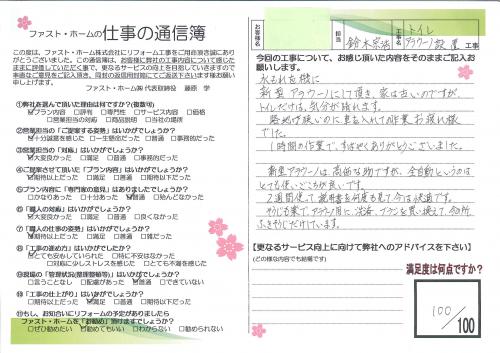 ファスト・ホームの仕事の通信簿
この度は、ファスト・ホーム株式会社にリフォーム工事をご用命頂き誠にありがとうございました。この通信簿は、お客様に弊社の工事内容について感じたままに評価していただく事で、更なるサービスの向上を目指していきますので
率直なご意見をご記入頂き、同封の返信用封筒にてご返送下さいます様お願い申し上げます。
ファスト・ホーム㈱ 代表取締役 藤原 学
①弊社を選んで頂いた理由は何ですか?(複数可)
プラン内容 □評判 □専門性 □サービス内容 □価格
□営業担当の対応 □商品説明 □自社の環境
②営業担当の「ご提案する姿勢」はいかがでしょうか?
十分誠意を感じた □一生懸命だった □普通 □事務的だった
③営業担当の「対応」はいかがでしょうか?
大変良かった □満足 □普通 □事務的だった
④ご提案させて頂いた「プラン内容」はいかがでしたか?
期待以上だった □満足 □普通 □期待以下だった
⑤プラン内容に「専門家の意見」はありましたでしょうか?
□かなりあった □十分あった □普通 □殆んどなかった
⑥「職人の対応」はいかがでしたでしょうか?
大変良かった □満足 □普通 □良くなかった
⑦「職人の仕事の姿勢」はいかがでしょうか?
期待以上だった □満足 □普通 □雑だった
⑧「工事の進め方」はいかがでしたか?
とても安心していられた □特に不安はなかった
□対応に少しストレスを感じた □とても不満を感じた
⑨現場の「管理状況(整理整頓等)」はいかがでしたか?
□言うことなし 配慮があった □普通 □できていない
⑩「工事の仕上がり」はいかがでしたか?
期待以上だった □満足 □普通 □期待以下だった
⑪もし、お知合いにリフォームの予定がありましたら
ファスト・ホームを「お勧め」頂けますでしょうか?
□ぜひ勧めたい 勧めてもいい □わからない □勧められない
お客様名
担当
鈴木宗
工事名
トイレ
アラウーノ設置
工事
今回の工事について、お感じ頂いた内容をそのままご記入お願いします。
水もれを機に
新型アラウーノにして頂き、家は古いのですが、
トイレだけは、気分が晴れます。
路地は狭いのに車を入れて作業お疲れ様
でした。
1時間の作業で、すばやくありがとうございました。
新型アラウーノは高価な物ですが、全自動というのは
とても使いごこちが良いです。
2週間使って説明書を何度も見て今は快適です。
そうじも楽でアラウーノ用に洗
【更なるサービス向上に向けて弊社へのアドバイスを下さい】
(どの様な内容でも結構です)
満足度は何点ですか?
100/
100